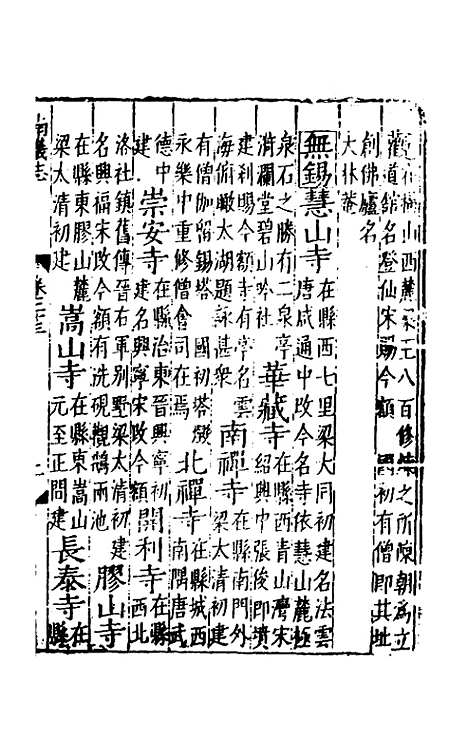 在橫山西麓宋王八百修煉之所陳朝為立
道館名登仙宋賜今額國初有僧即其址
創佛廬名
大林菴
無錫慧山寺在縣西七里梁大同初建名法雲
唐咸通中改今名寺依慧山麓極
泉石之勝有二泉亭華藏寺在縣西青山灣宋
漪瀾堂碧山吟社紹興中張俊即墳
建利賜今額寺有亭名雲南禪寺在縣南門外
海俯瞰太湖題詠甚衆梁太清初建
有僧伽留錫塔國初塔毀北禪寺在縣城西
永樂中重修僧會司在焉南隅唐武
德中崇安寺在縣治東晉興寧初開利寺在縣
建建名興寧宋改今額西北
洛社鎮舊傳晉右軍别墅梁太清初建膠山寺
名興福宋改今額有洗硯觀鵝兩池
在縣東膠山麓嵩山寺在縣東嵩山長泰寺在
梁太清初建元至正間建縣